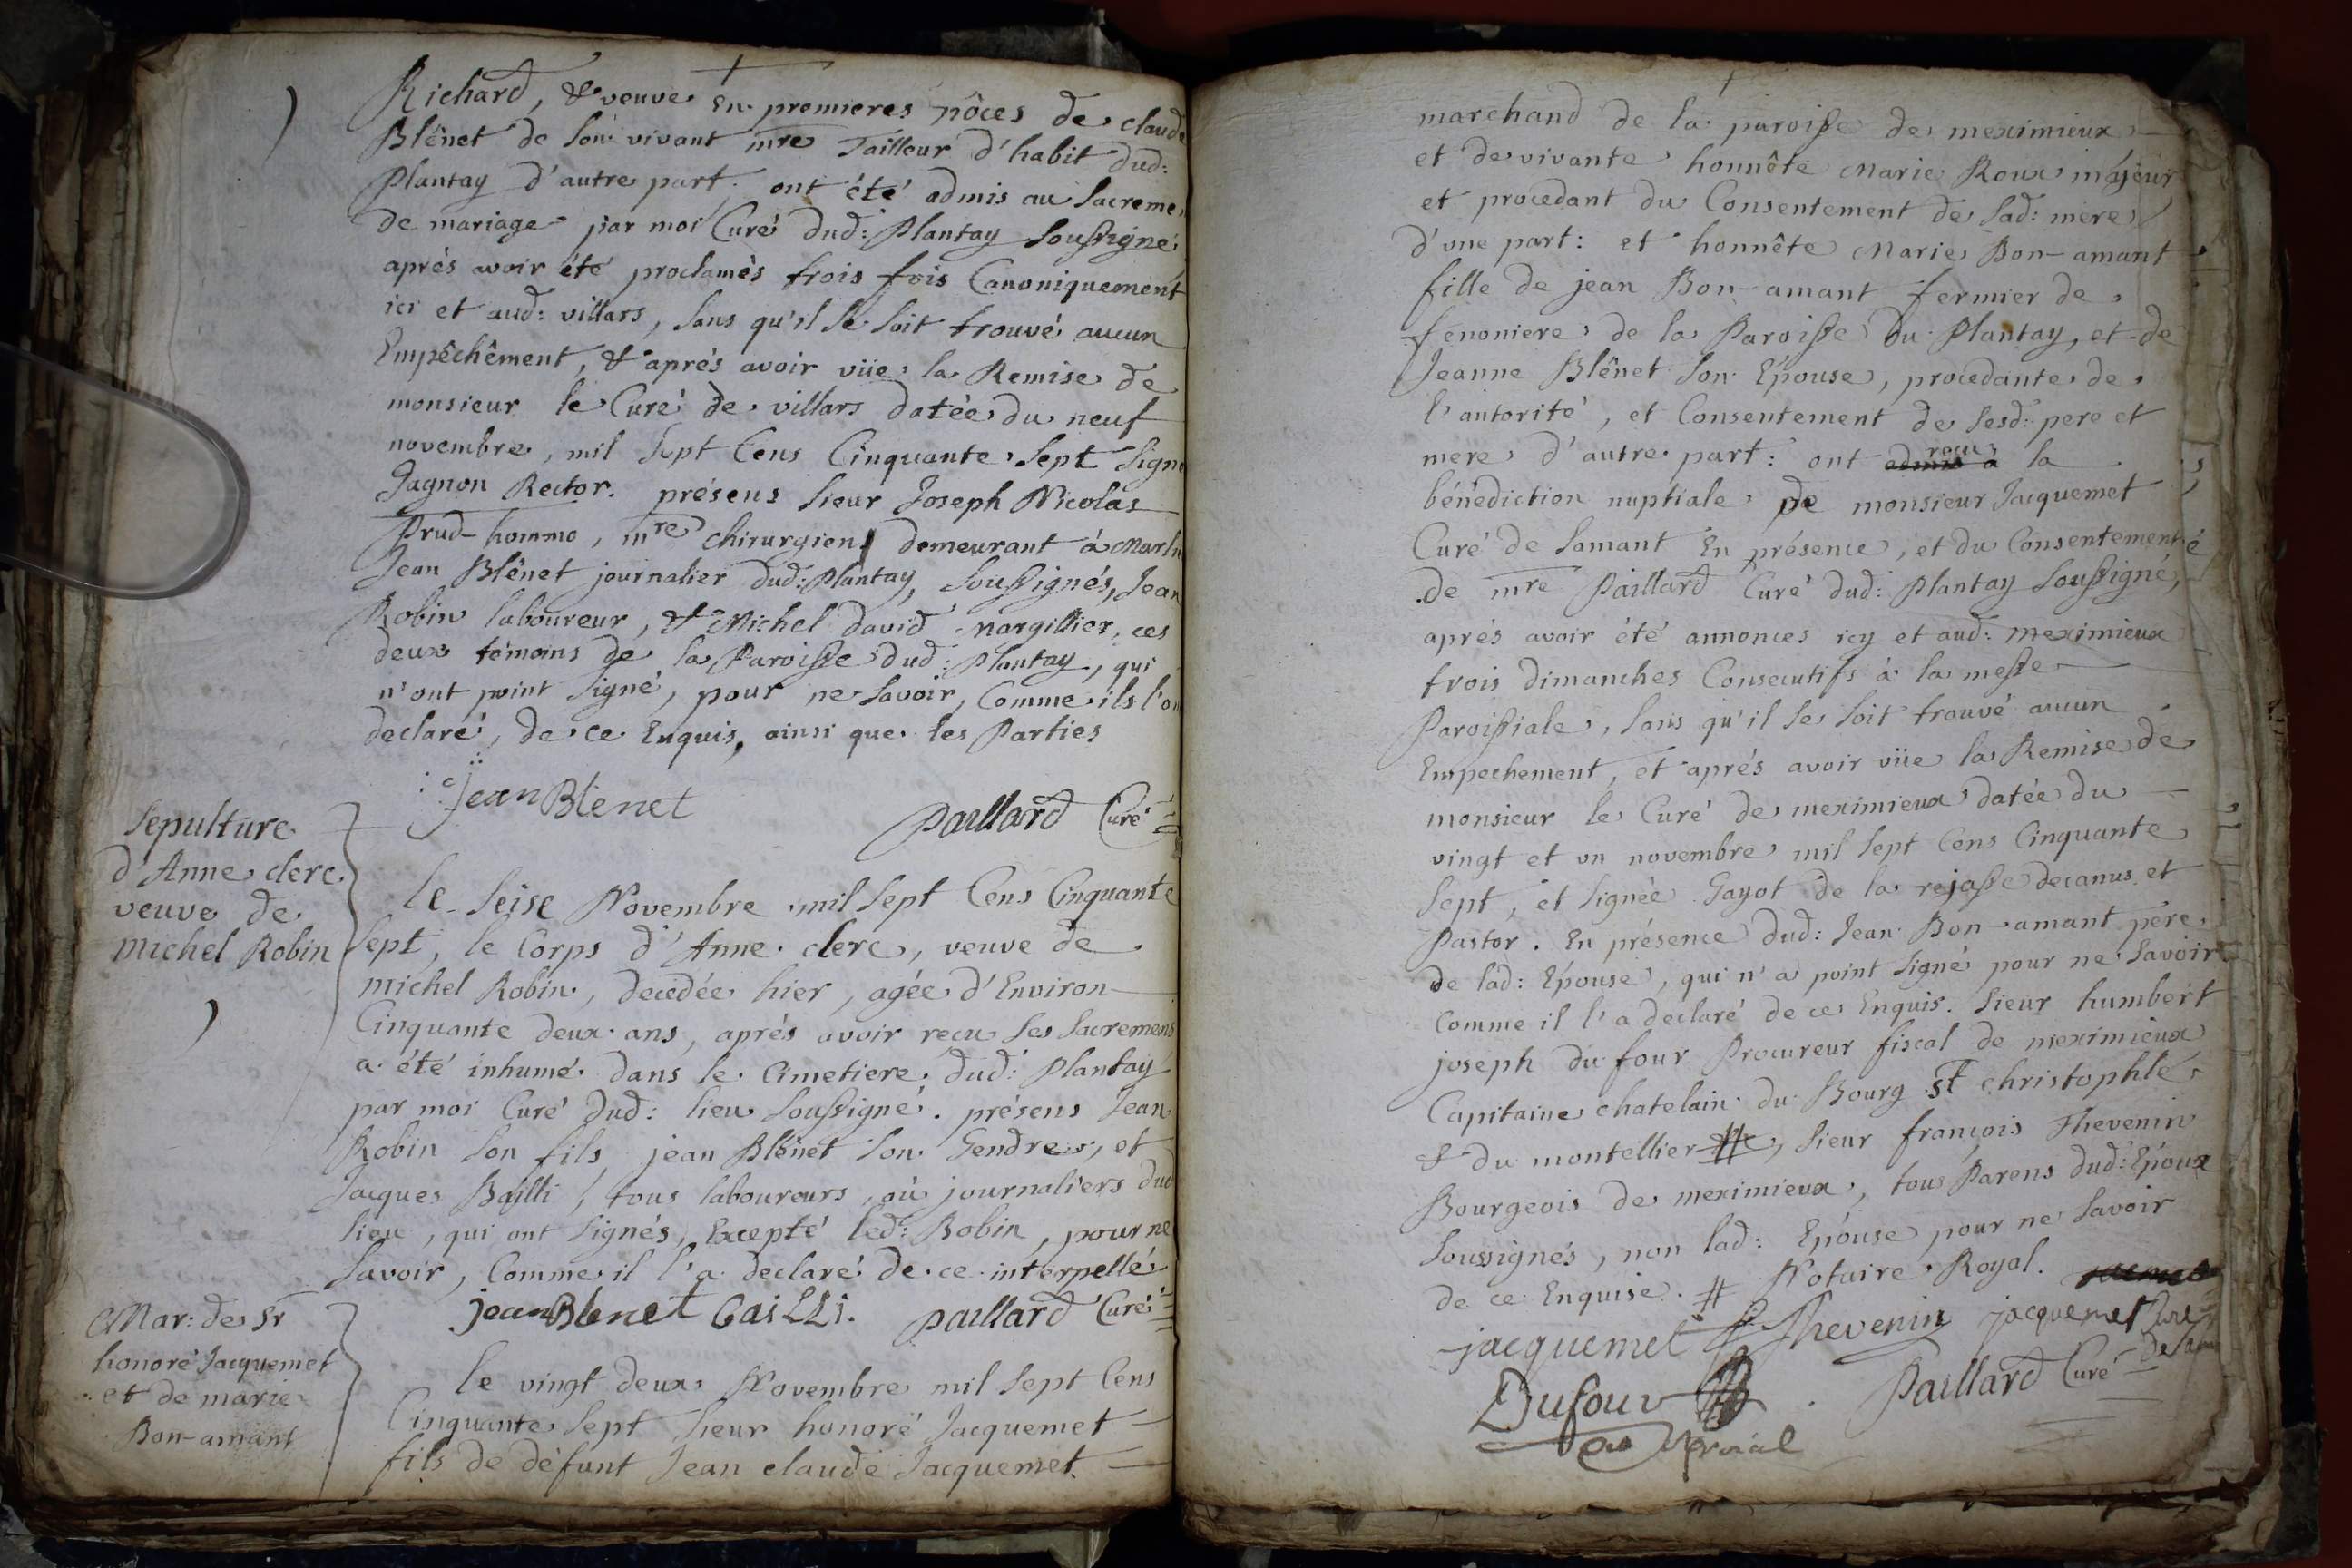 Richard, & veuve En premieres nôces de claude
Blênet de son vivant mre Tailleur d'habit dud:
Plantay d'autre part. ont été admis au Sacreme
de mariage par moi Curé dud: Plantay Soussigné,
aprés avoir été proclamès trois fois Canoniquement
ici et aud: villars, Sans qu'il Se Soit trouvé aucun
Empêchêment, & aprés avoir vüe la Remise de
monsieur le Curé de villars datée du neuf
novembre, mil Sept Cens Cinquante Sept Signé
Gagnon Rector. présens Sieur Joseph Nicolas
Prud-homme, mre chirurgien demeurant à Marlu
Jean Blênet journalier dud: Plantay, Soussignés, Jean
Robin laboureur, & Michel david Margillier, ces
deux témoins de la Paroisse dud: Plantay, qui
n'ont point Signé, pour ne Savoir, Comme ils l'on
declaré, de ce Enquis, ainsi que les Parties
jean Blenet
Paillard Curé
Sepulture
d'Anne clerc
veuve de
Michel Robin
le Seise Novembre mil Sept Cens Cinquante
Sept, le Corps d'Anne clerc, veuve de
michel Robin, decedée hier, agée d'Environ
Cinquante deux ans, aprés avoir recu Ses Sacremens
a été inhumé dans le Cimetiere dud: Plantay
par moi Curé dud: lieu Soussigné. présens Jean
Robin Son fils, jean Blênet Son Gendre, et
Jacques Bailli, tous laboureurs, où journaliers dud
lieu, qui ont Signés, Excepté led: Robin, pour ne
Savoir, Comme il l'a declaré de ce interpellé
jean Blenet Bailli. Paillard Curé
Mar: de Sr
honoré Jacquemet
et de marie
Bon-amant
le vingt deux Novembre mil Sept Cens
Cinquante Sept Sieur honoré Jacquemet
fils de défunt Jean claude Jacquemet
marchand de la paroisse de meximieux
et de vivante honnête Marie Roux májeur
et procedant du Consentement de Sad: mere
d'une part: et honnête Marie Bon-amant
fille de jean Bon-amant fermier de
fenoniere de la Paroisse du Plantay, et de
Jeanne Blênet Son Epouse, procedante de
l'autorité, et Consentement de Sesd: pere et
mere d'autre part: ont admis à recu la
bénédiction nuptiale de monsieur Jacquemet
Curé de Samant En présence, et du Consentement
de mre Paillard Curé dud: Plantay Soussigné,
aprés avoir été annonces icy et aud: meximieux
trois dimanches Consecutifs à la messe
Paroissiale, Sans qu'il Se Soit trouvé aucun
Empechement, et aprés avoir vüe la Remise de
monsieur le Curé de meximieux datée du
vingt et un novembre mil Sept Cens Cinquante
Sept, et Signée Gayot de la rejasse decanus et
Pastor. En présence dud: Jean Bon-amant pere
de lad: Epouse, qui n'a point Signé pour ne Savoir
Comme il l'a declaré de ce Enquis. Sieur humbert
joseph du four Procureur fiscal de meximieux
Capitaine chatelain du Bourg St christophle
& du montellier #, Sieur françois Thevenin
Bourgeois de meximieux, tous Parens dud: Epoux
Soussignés, non lad: Epouse pour ne Savoir
de ce Enquise. # Notaire Royal.
jacquemet f. Thevenin jacquemet Curé
Dufour Paillard Curé